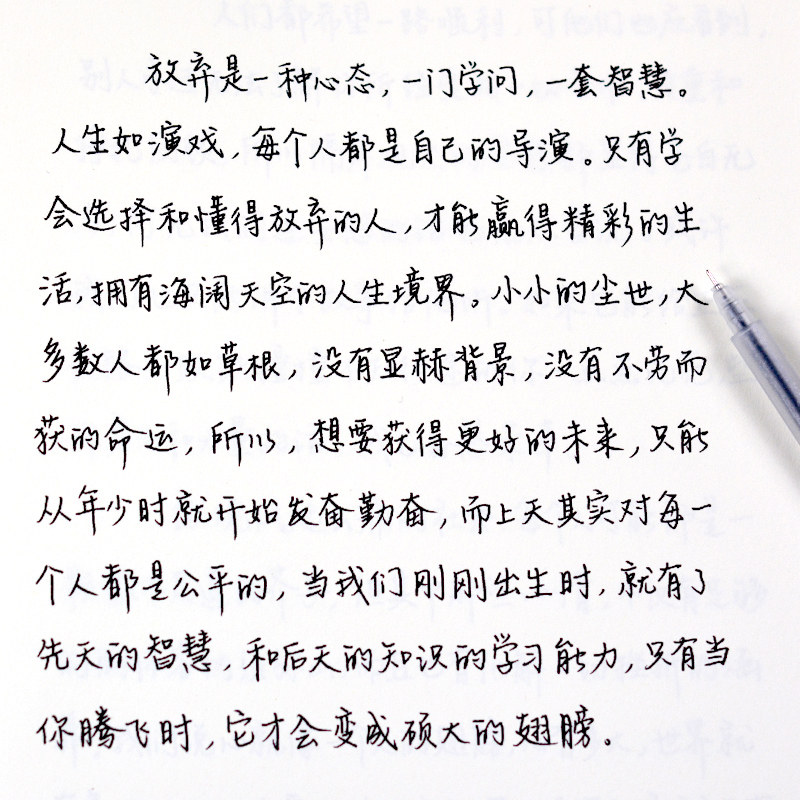 放弃是一种心态，一门学问，一套智慧。
人生如演戏，每个人都是自己的导演。只有学
会选择和懂得放弃的人，才能赢得精彩的生
活，拥有海阔天空的人生境界。小小的尘世，大
多数人都如草根，没有显赫背景，没有不劳而
获的命运，所以，想要获得更好的未来，只能
从年少时就开始发奋勤奋，而上天其实对每一
个人都是公平的，当我们刚刚出生时，就有了
先天的智慧，和后天的知识的学习能力，只有当
你腾飞时，它才会变成硕大的翅膀。